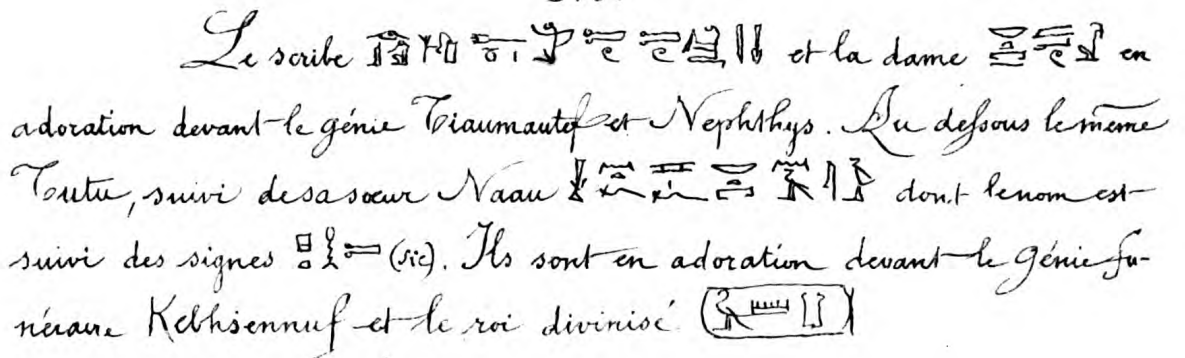 Le scribe et la dame en
adoration devant le génie Tiaumautef et Nephthys. Au deſsous le même
Tutu, suivi de sa sœur Naau dont le nom est
suivi des signes (sic). Ils sont en adoration devant le génie fu-
néraire Kebhsennuf et le roi divinisé